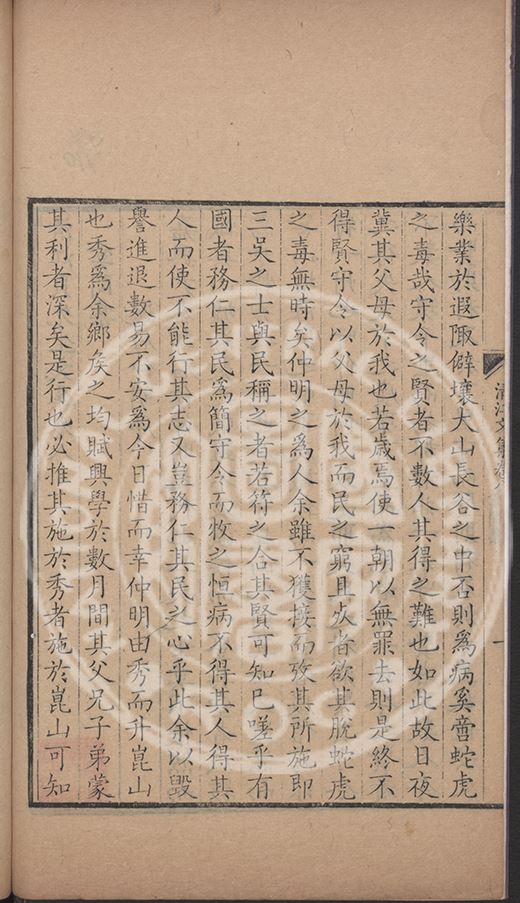 樂業於遐陬僻壤大山長谷之中否則為病奚啻蛇虎
之毒哉守令之賢者不數人其得之難也如此故日夜
冀其父母於我也若歲焉使一朝以無罪去則是終不
得賢守令以父母於我而民之窮且疚者欲其脫蛇虎
之毒無時矣仲明之為人余雖不獲接而攷其所施即
三吳之士與民稱之者若符之合其賢可知已嗟乎有
國者務仁其民為簡守令而牧之恒病不得其人得其
人而使不能行其志又豈務仁其民之心乎此余以毀
譽進退數易不安為今日惜而幸仲明由秀而升崑山
也秀為余鄉矦之均賦興學於數月間其父兄子弟蒙
其利者深矣是行也必推其施於秀者施於崑山可知